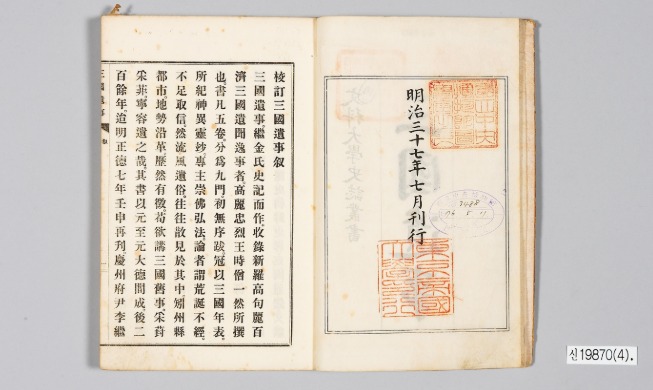 明治三十七年七月刊行
3488
校訂三國遺事叙
三國遺事繼金氏史記而作收錄新羅高句麗百
濟三國遺聞逸事者高麗忠烈王時僧一然所撰
也書凡五卷分爲九門、初無序跋、冠以三國年表、
所紀神異靈妙專主崇佛弘法論者謂荒誕不經、
不足取信然流風遺俗、往往散見於其中、矧州縣
都市地勢沿革歷然有徵、苟欲講三國舊事、采葑
采菲、寧容遺之哉其書以元至元大德間成、後二
百餘年、當明正德七年壬申再刋、慶州府尹李繼
신19870(4).